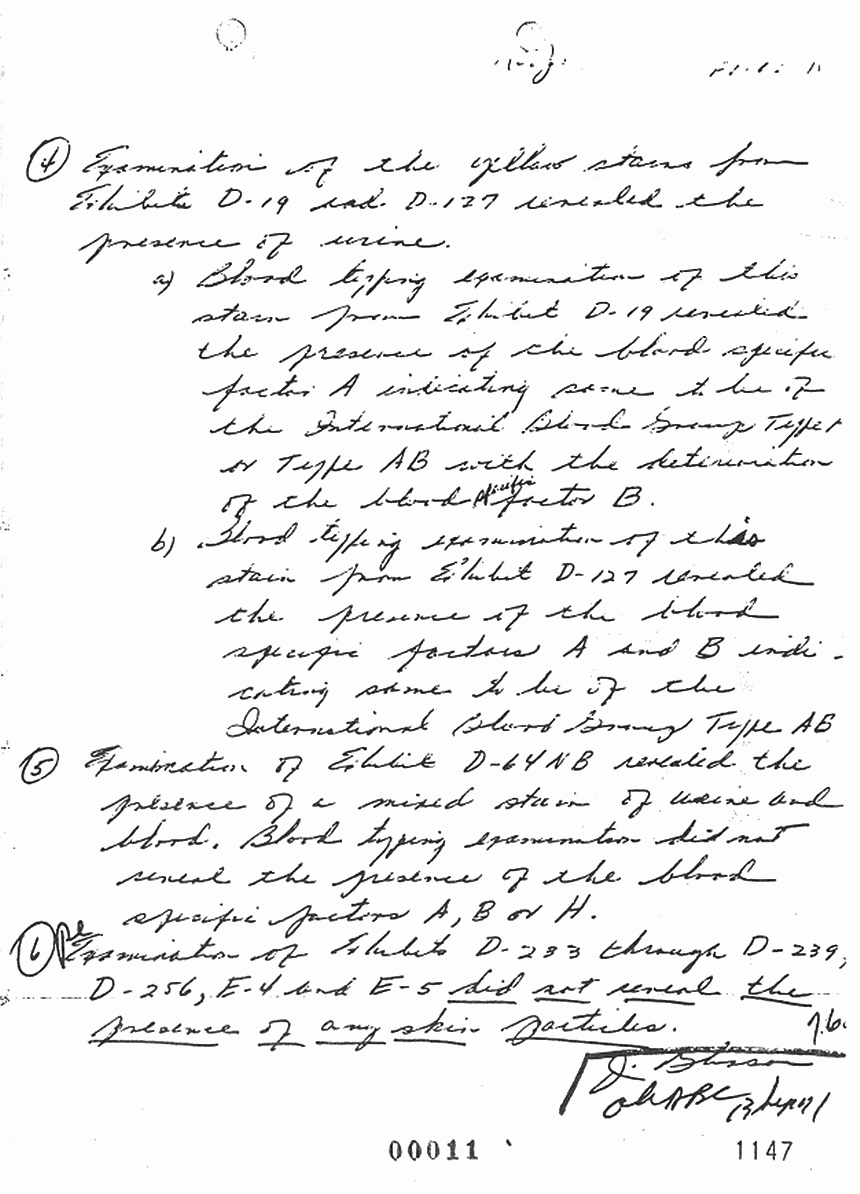 ④ Examination of the yellow stains from
Exhibits D-19 and D-127 revealed the
presence of urine.
a) Blood typing examination of this
stain from Exhibit D-19 revealed
the presence of the blood specific
factor A indicating same to be of
the International Blood Group Type A
or Type AB with the deterioration
of the blood specific factor B.
b) Blood typing examination of this
stain from Exhibit D-127 revealed
the presence of the blood
specific factors A and B indi-
cating same to be of the
International Blood Group Type AB
⑤ Examination of Exhibit D-64NB revealed the
presence of a mixed stain of urine and
blood. Blood typing examination did not
reveal the presence of the blood
specific factors A, B or H.
⑥ Examination of Exhibits D-233 through D-239,
D-256, E-4 and E-5 did not reveal the
presence of any skin particles.
00011 1147